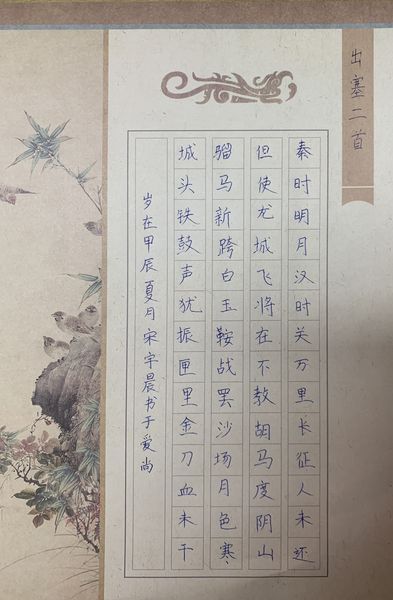 出塞二首
秦时明月汉时关万里长征人未还
但使龙城飞将在不教胡马度阴山
骝马新跨白玉鞍战罢沙场月色寒
城头铁鼓声犹振匣里金刀血未干
岁在甲辰夏月宋宇晨书于爱尚